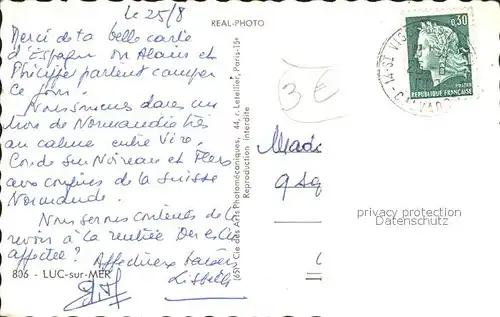 le 25/8
Merci de ta belle carte
d'Espagne où Alain et
Philippe partent camper
ce jour.
Nous sommes dans un
de Normandie très
au calme entre Vire,
Condé sur Noireau et Flers
aux confins de la Suisse
Normande.
Nous serons contents de te
revoir à la rentrée
affectée? Affectueux baisers
806 - LUC-sur-MER
REAL-PHOTO
(65) Cie des Arts Photomécaniques, 44, r. Letellier, Paris-15e
Reproduction interdite
3€
0,30
RÉPUBLIQUE FRANÇAISE
14-ST VIG
CALVADOS
Mada
privacy protection
Datenschutz